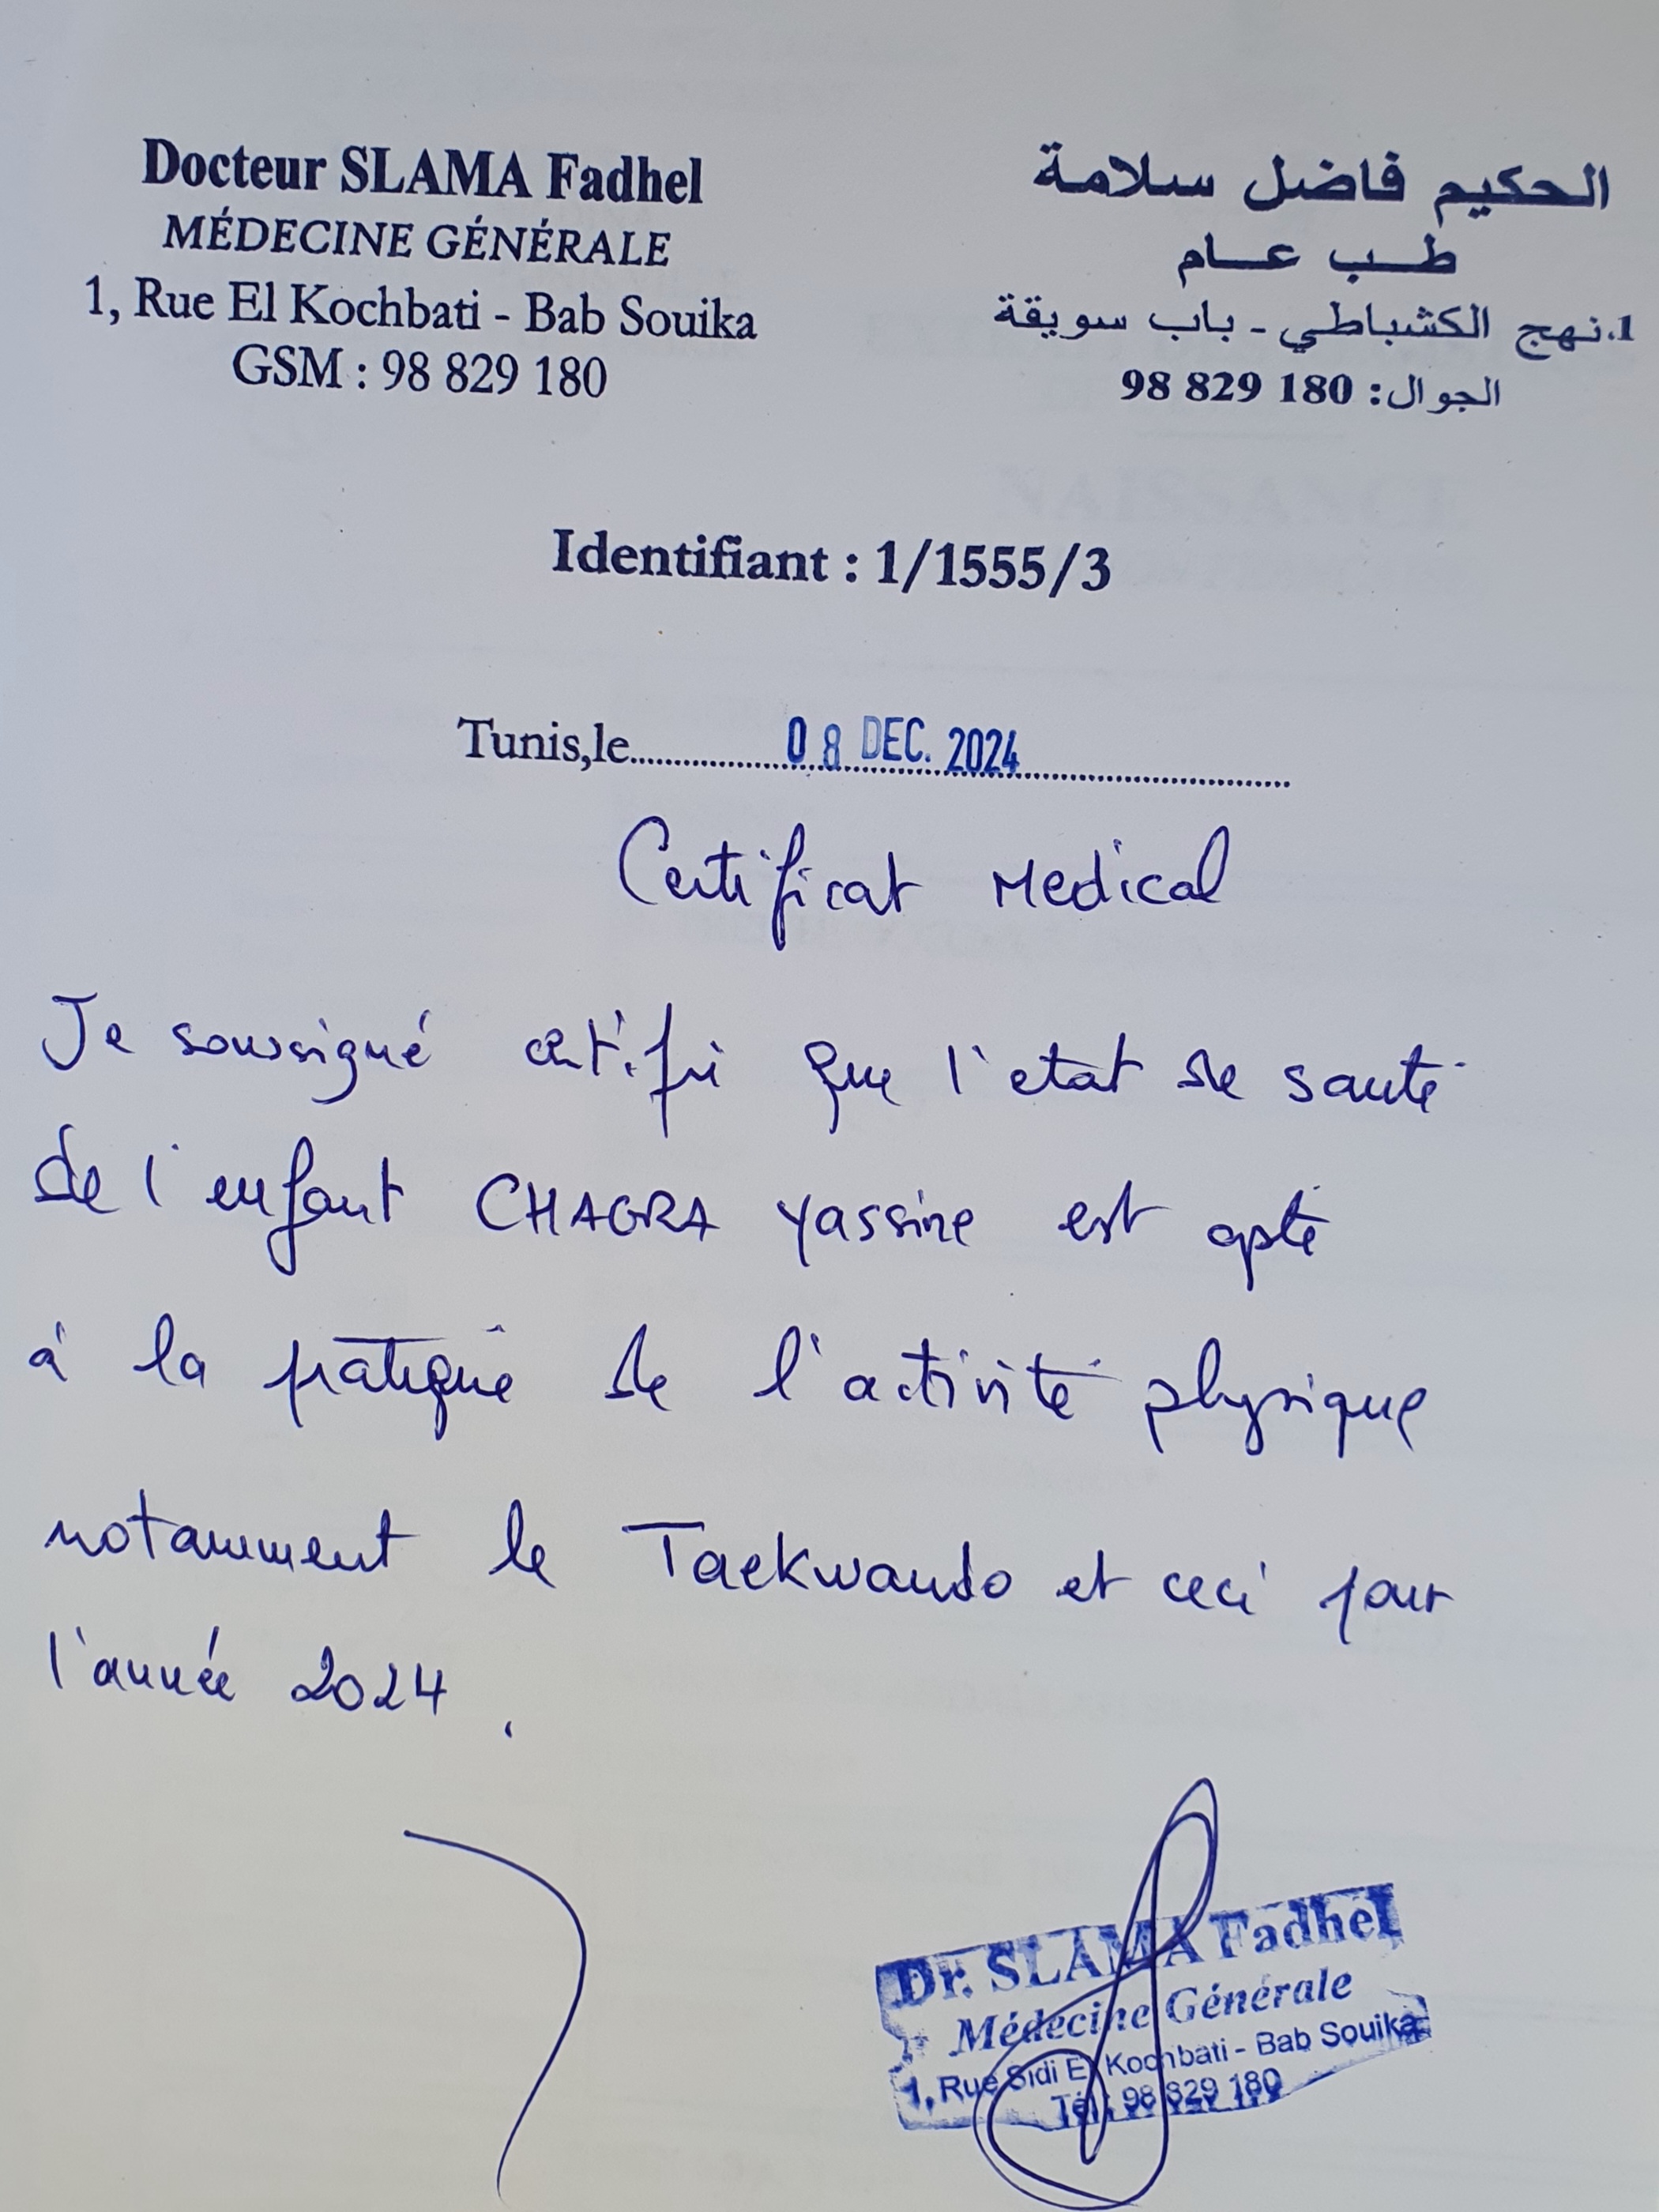 Docteur SLAMA Fadhel
MÉDECINE GÉNÉRALE
1, Rue El Kochbati - Bab Souika
GSM : 98 829 180
الحكيم فاضل سلامة
طب عام
1.نهج الكشباطي - باب سويقة
الجوال: 180 829 98
Identifiant : 1/1555/3
Tunis,le 08 DEC. 2024
Certificat Medical
Je soussigné certifi que l'etat de santé
de l'enfant CHAGRA Yassine est apte
à la pratique de l'activité physique
notamment le Taekwando et ceci pour
l'année 2024.
Dr. SLAMA Fadhel
Médecine Générale
1, Rue Sidi El Kochbati - Bab Souika
Tél : 98 829 180